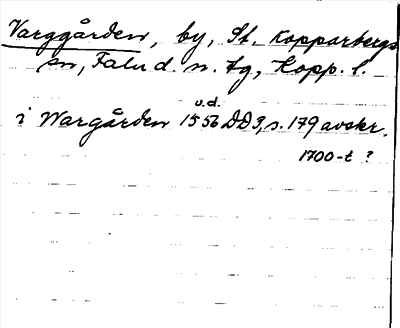 Varggården, by, St. Kopparbergs
sn, Falu d. n. tg, Kopp. l.
u.d.
i Wargården 1556 DD3, s. 179 avskr.
1700-t ?